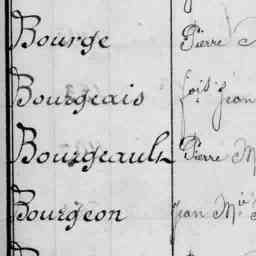 Bourge Pierre
Bourgeais fois Jean
Bourgeault Pierre M
Bourgeon Jean Mie